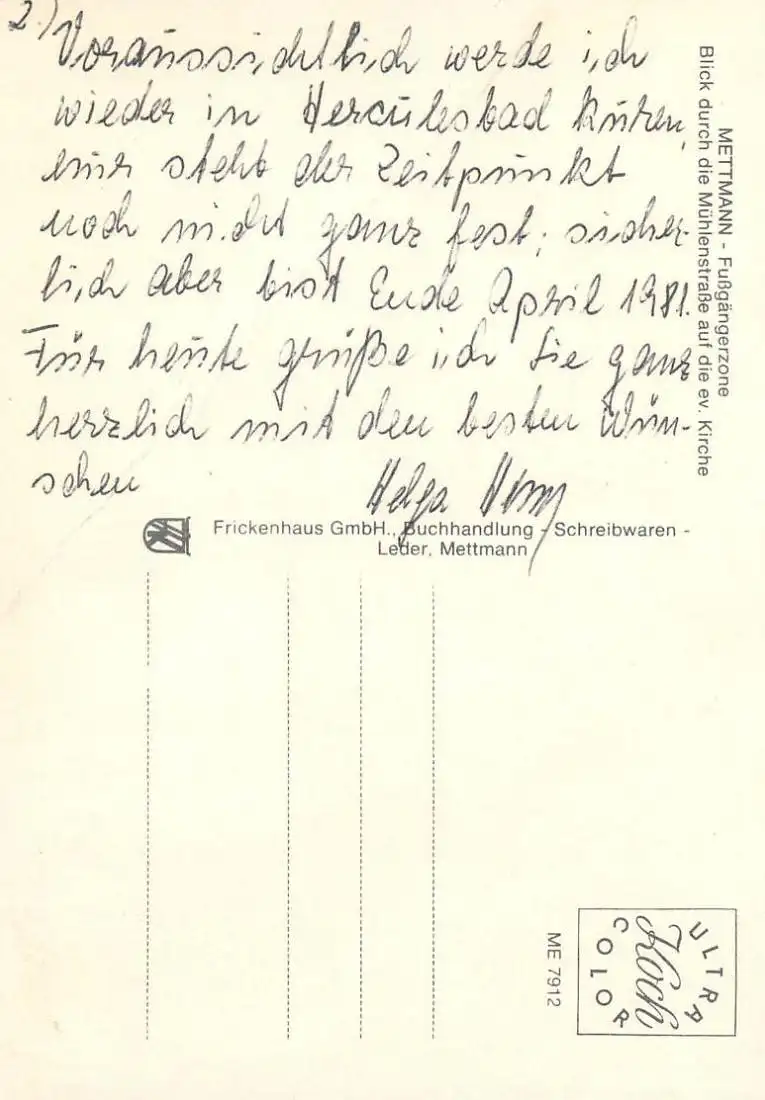 2.)
Voraussichtlich werde ich
wieder in Herculesbad kuren,
nur steht der Zeitpunkt
noch nicht ganz fest; sicher-
lich aber bist Ende April 1981.
Für heute grüße ich Sie ganz
herzlich mit den besten Wün-
schen
Helga
METTMANN - Fußgängerzone
Blick durch die Mühlenstraße auf die ev. Kirche
Frickenhaus GmbH., Buchhandlung - Schreibwaren -
Leder, Mettmann
ME 7912
ULTRA
Koch
COLOR